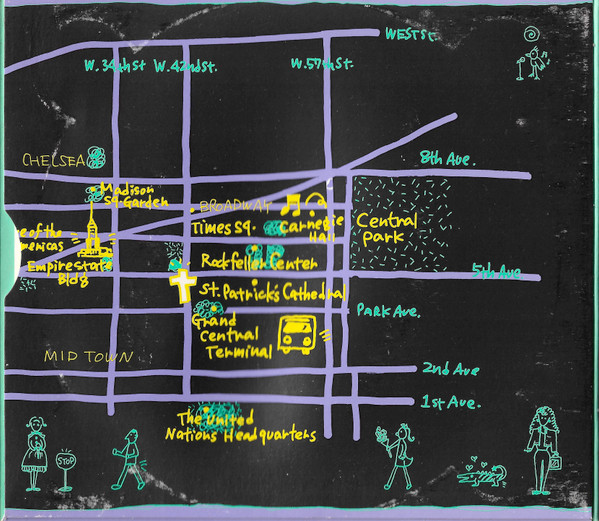 WEST St.
W.34th St W.42nd St. W.57th St.
CHELSEA
8th Ave.
Madison
Sq. Garden
BROADWAY
Times Sq. Carnegie
Hall
Central
Park
e of the
mericas
Empire State
Bldg
Rockfeller Center
5th Ave
St. Patrick's Cathedral
Grand
Central
Terminal
PARK Ave.
MID TOWN
2nd Ave
1st Ave.
The United
Nations Headquarters
STOP